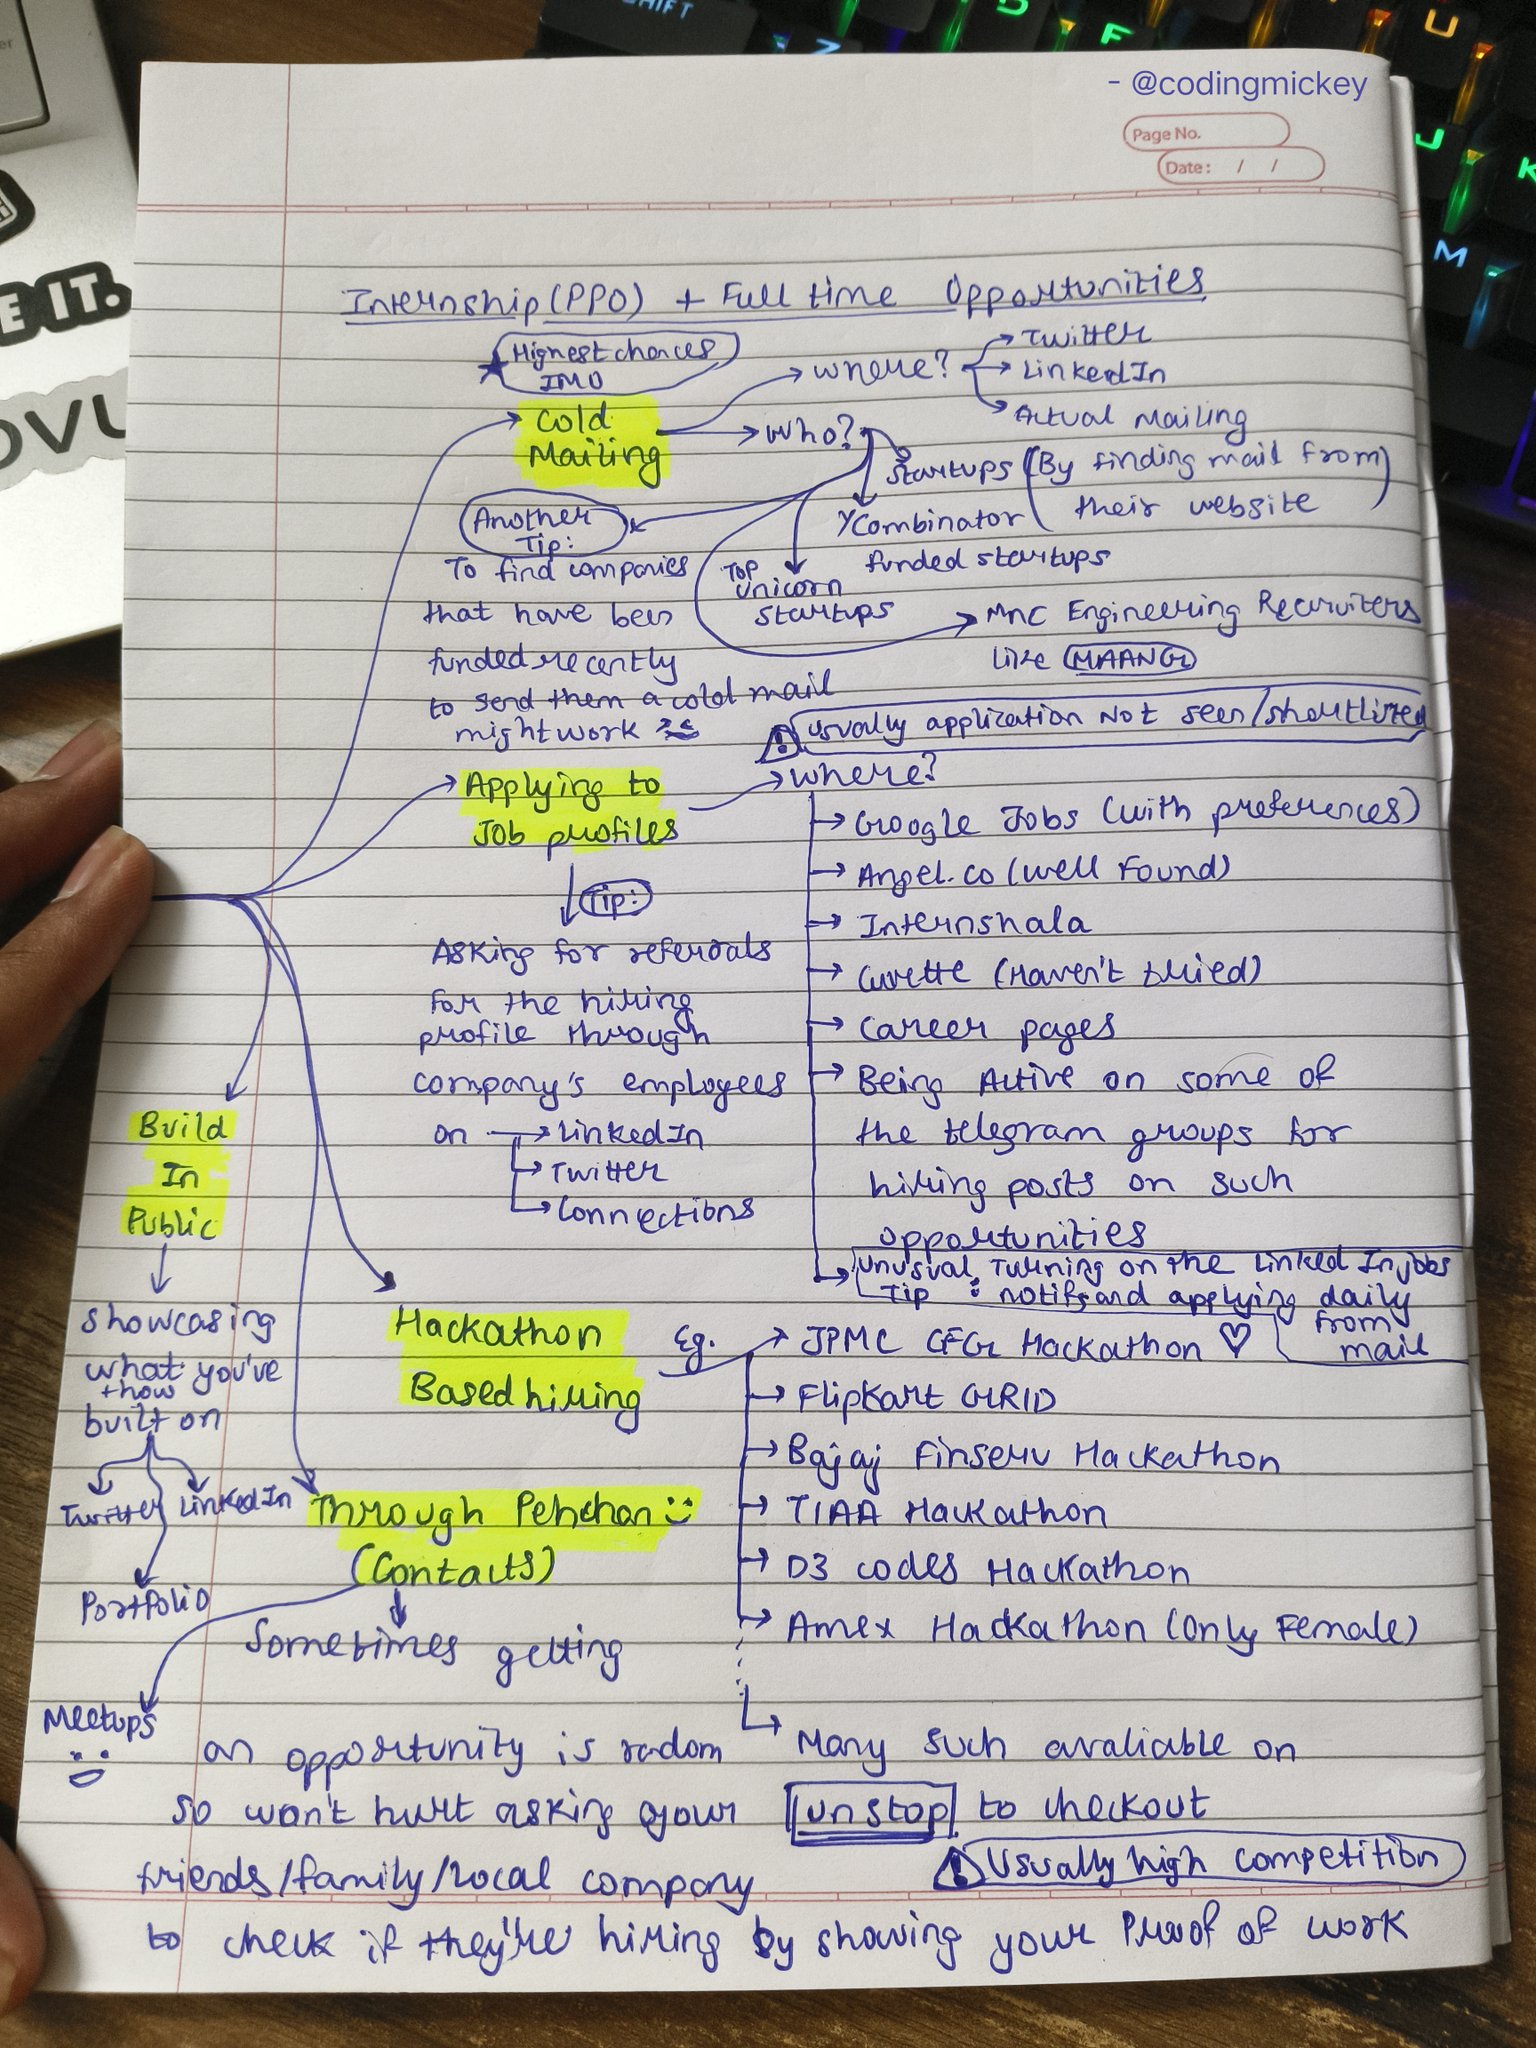 - @codingmickey
Page No.
Date: / /
Internship(PPO) + Full time Opportunities
Highest chances
IMO
Cold
Mailing
where?
Twitter
LinkedIn
Actual Mailing
Who?
Startups (By finding mail from
their website)
YCombinator
funded startups
Top
Unicorn
startups
MNC Engineering Recruiters
like MAANG
Another
Tip:
To find companies
that have been
funded recently
to send them a cold mail
might work
! Usually application Not seen/shortlisted
Applying to
Job profiles
where?
Google Jobs (with preferences)
Angel.co (Well Found)
Internshala
Cuvette (Haven't tried)
Career pages
Being Active on some of
the telegram groups for
hiring posts on such
opportunities
Unusual Tip : Turning on the LinkedIn jobs
notifs and applying daily
from
mail
Tip:
Asking for referrals
for the hiring
profile through
company's employees
on
LinkedIn
Twitter
Connections
Build
In
Public
showcasing
what you've
+ how
built on
Twitter
LinkedIn
Portfolio
Hackathon
Based hiring
Eg.
JPMC CFG Hackathon ♡
Flipkart GRID
Bajaj Finserv Hackathon
TIAA Hackathon
D3 codes Hackathon
Amex Hackathon (Only Female)
Many such avaliable on
unstop to checkout
! Usually high competition
Through Pehchan
(Contacts)
Meetups
Sometimes getting
an opportunity is radom
so won't hurt asking your
friends/family/local company
to check if they're hiring by showing your Proof of work
SHIFT
Z
D
F
U
J
K
M
E IT.
OVU
er